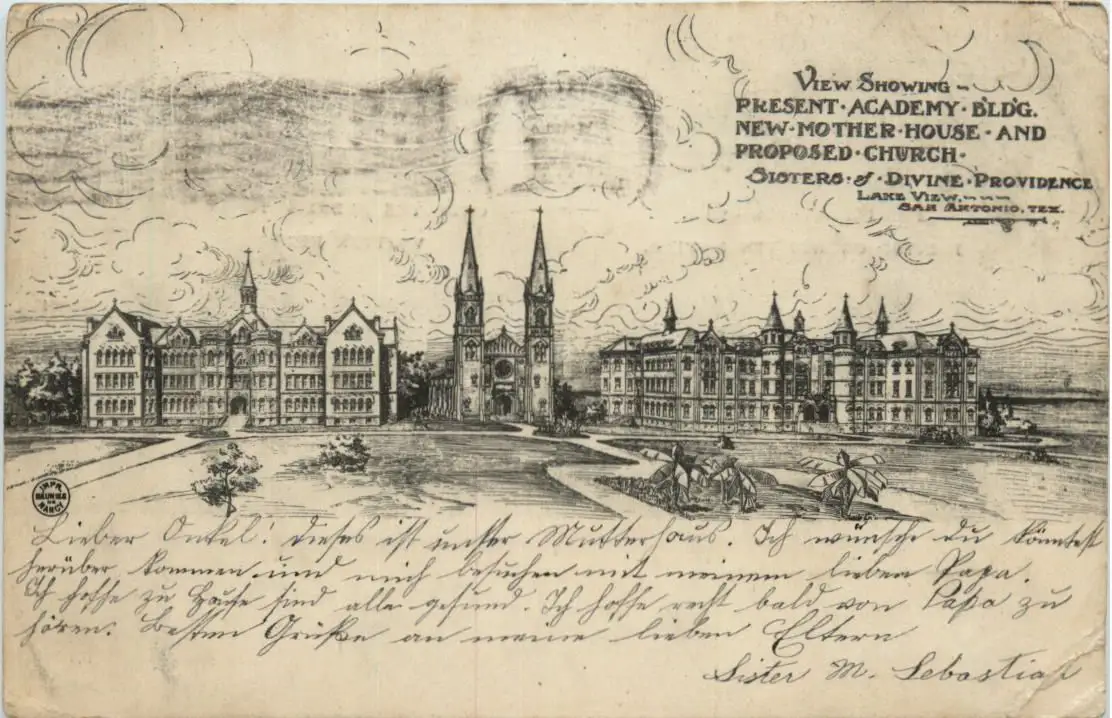 VIEW SHOWING -
PRESENT · ACADEMY · BLD'G.
NEW · MOTHER · HOUSE · AND
PROPOSED · CHURCH ·
· SISTERS · of · DIVINE · PROVIDENCE
LAKE VIEW. ~ ~ ~
SAN ANTONIO, TEX.
IMPR.
NANCY
Lieber Onkel! dieses ist unser Mutterhaus. Ich wünsche du könntest
herüber kommen und mich besuchen mit meinem lieben Papa.
Ich hoffe zu Hause sind alle gesund. Ich hoffe recht bald von Papa zu
hören. Besten Grüße an meine lieben Eltern
Sister M. Sebastian